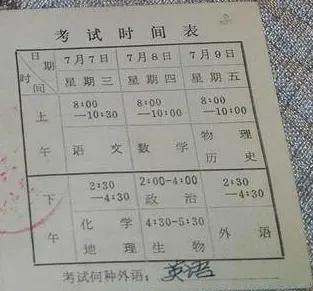 考试时间表
日期 7月7日 7月8日 7月9日
时间 星期三 星期四 星期五
上午 8:00—10:30 8:00—10:00 8:00—10:00
语文 数学 物理
历史
下午 2:30—4:30 2:00-4:00 2:30—4:30
政治
化学 4:30-5:30 外语
地理 生物
考试何种外语：英语